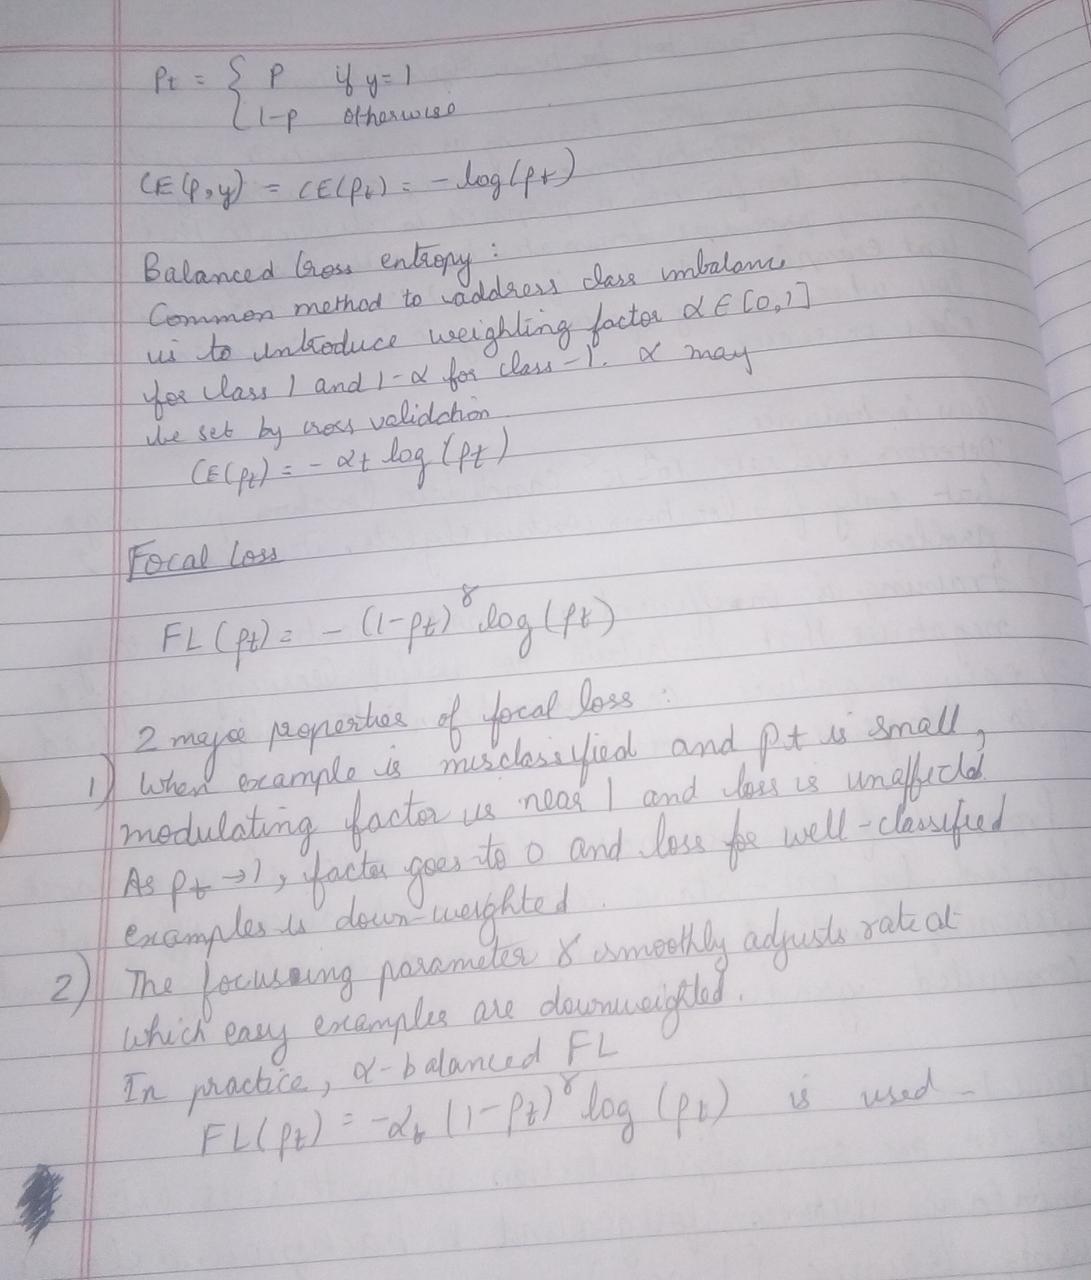 Pt = { P if y=1
1-p otherwise
CE(p,y) = CE(Pt) = - log(pt)
Balanced Cross entropy :
Common method to address class imbalance
is to introduce weighting factor α ∈ [0,1]
for class 1 and 1-α for class -1. α may
be set by cross validation
CE(pt) = - αt log (pt)
Focal Loss
FL (pt) = - (1-pt)^γ log (pt)
2 major properties of focal loss :
1) When example is misclassified and pt is small,
modulating factor is near 1 and loss is unaffected.
As pt → 1, factor goes to 0 and loss for well-classified
examples is down-weighted.
2) The focusing parameter γ smoothly adjusts rate at
which easy examples are downweighted.
In practice, α-balanced FL
FL(pt) = -αt (1-pt)^γ log (pt) is used -